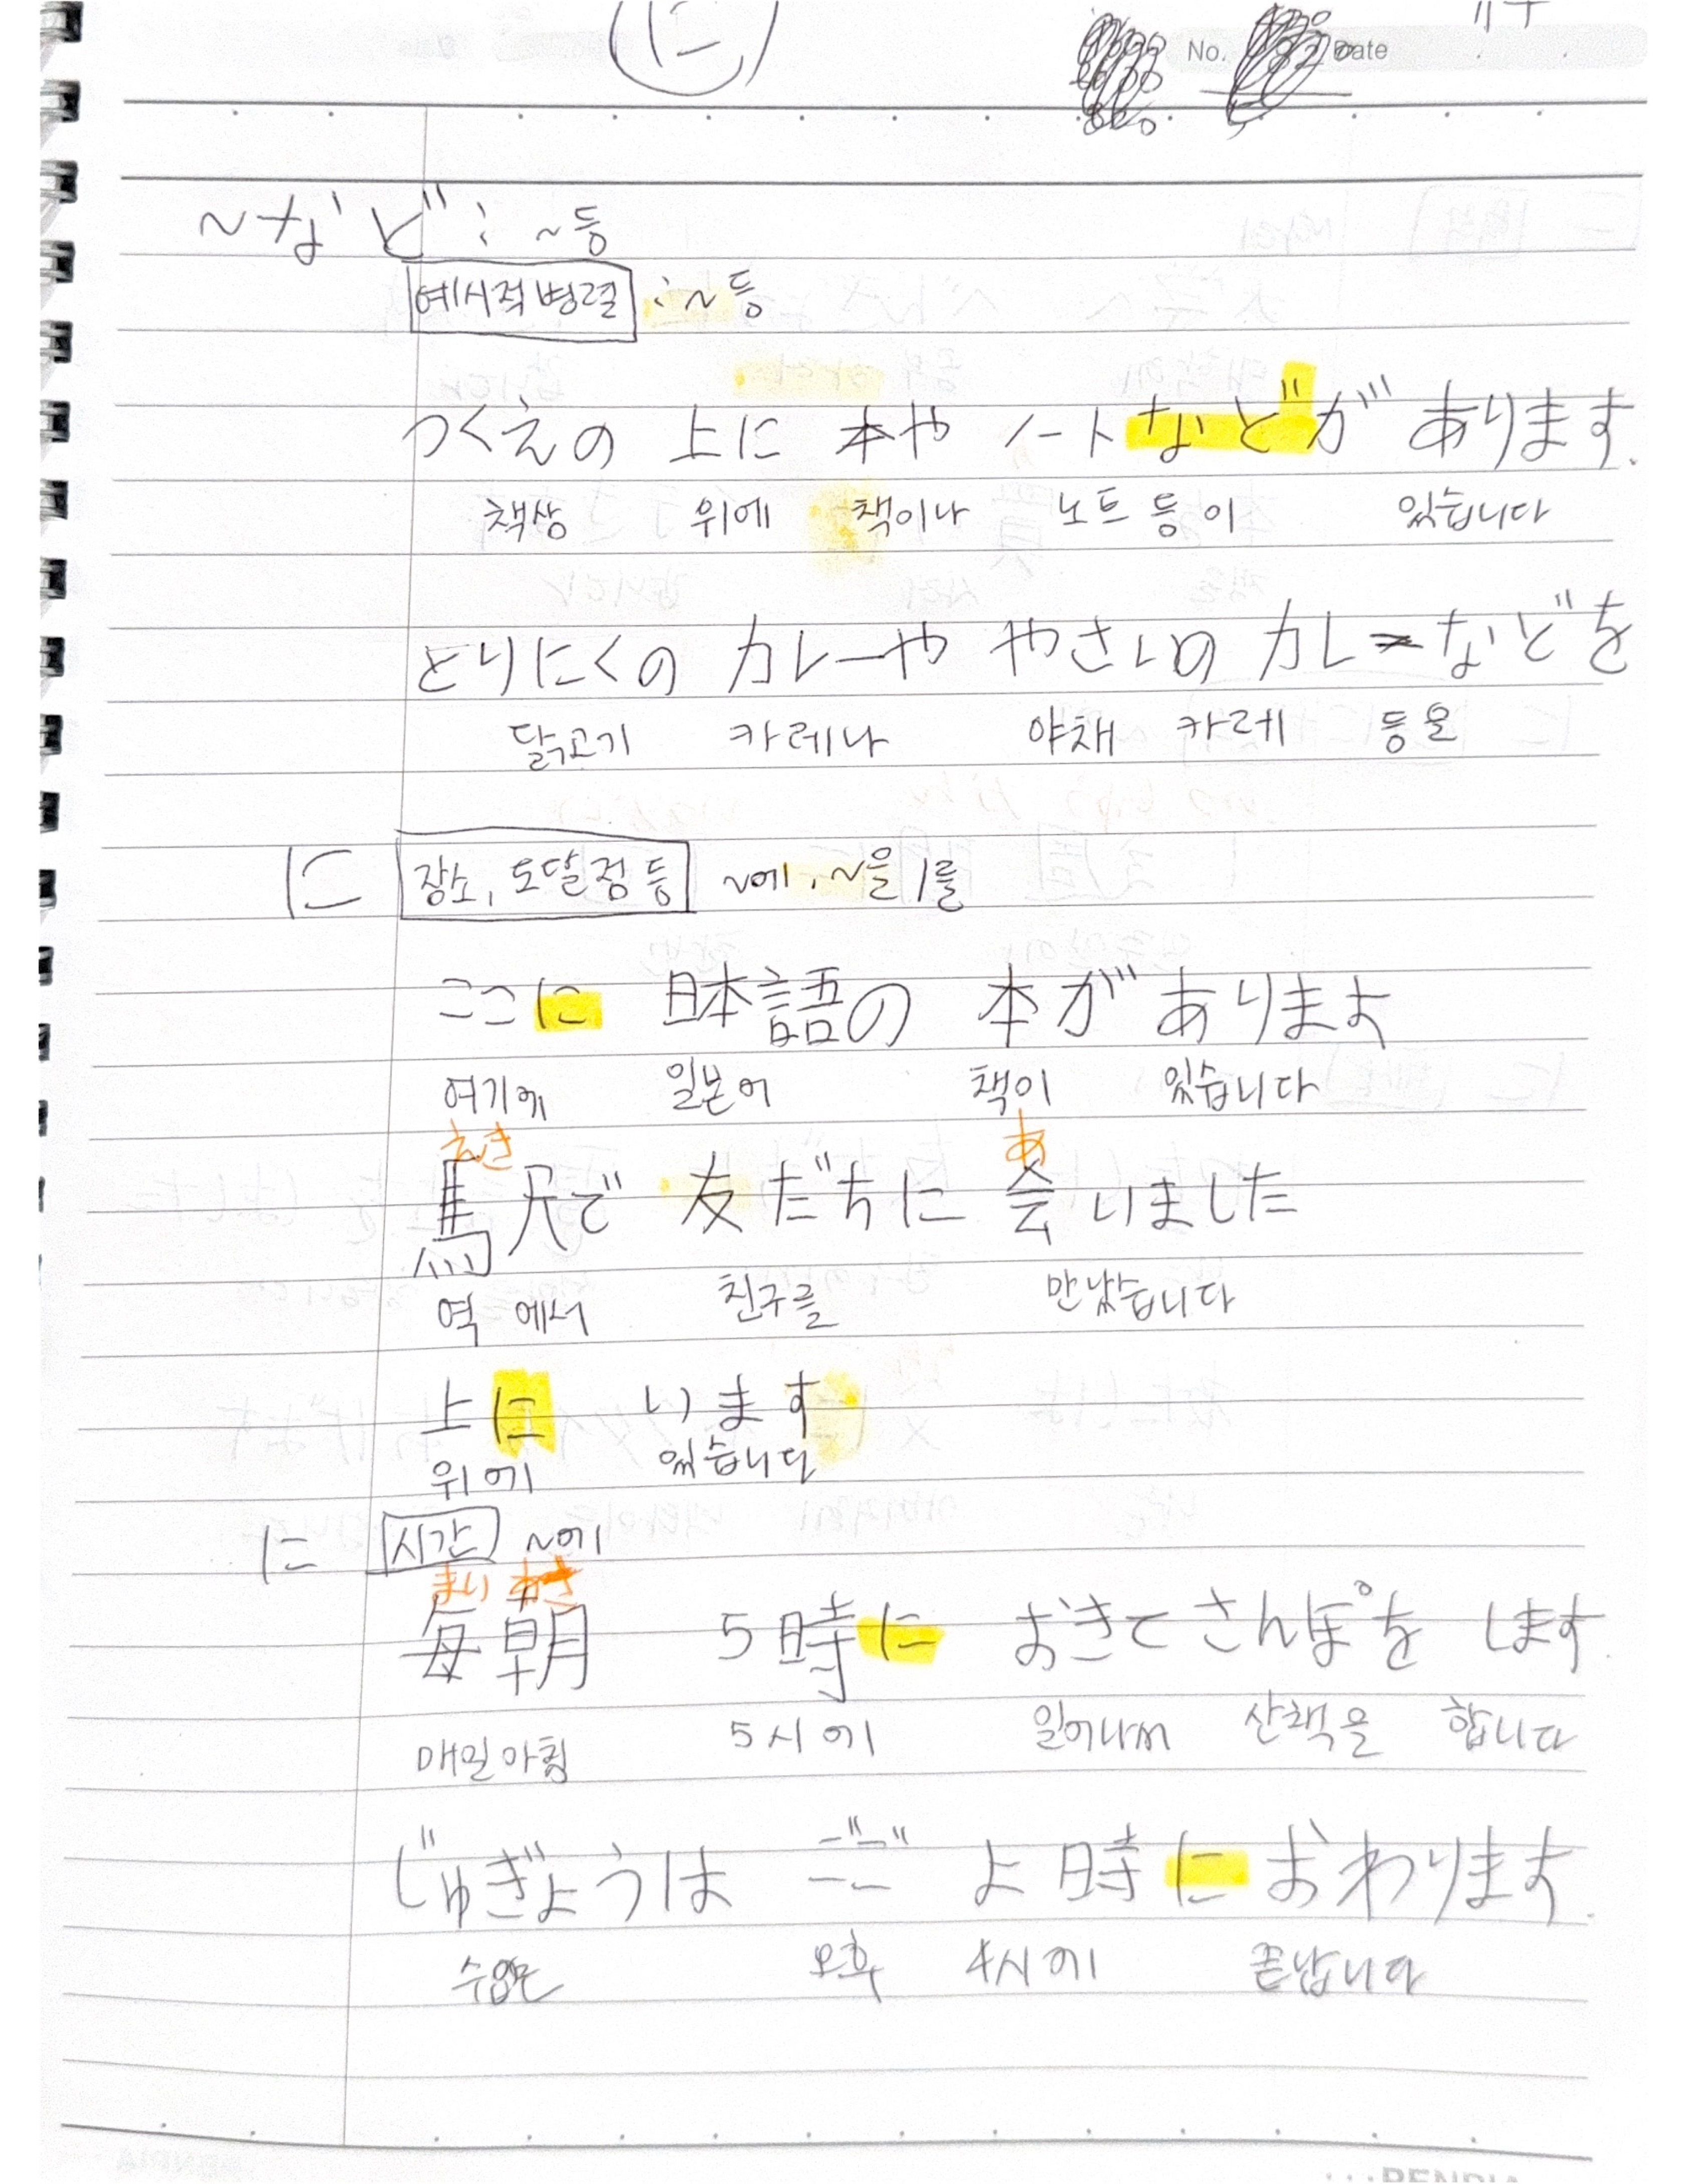 に
No. Date
~など : ~등
예시적병렬 : ~등
つくえの 上に 本や ノートなどが あります.
책상 위에 책이나 노트등이 있습니다
とりにくの カレーや やさいの カレーなどを
닭고기 카레나 야채 카레 등을
に 장소, 도달점 등 ~에, ~을/를
ここに 日本語の 本が あります
여기에 일본어 책이 있습니다
えき あ
駅で 友だちに 会いました
역에서 친구를 만났습니다
上に います
위에 있습니다
に 시간 ~에
まい あさ
毎朝 5時に おきて さんぽを します.
매일아침 5시에 일어나서 산책을 합니다
じゅぎょうは ごご よ時に おわります.
수업은 오후 4시에 끝납니다